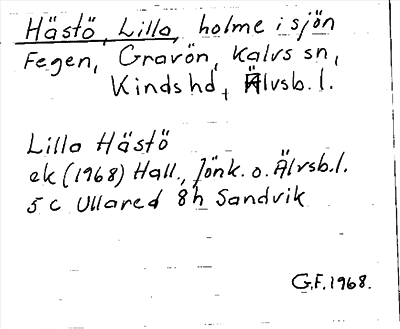 Hästö, Lilla, holme i sjön
Fegen, Gravön, Kalvs sn,
Kinds hd, Älvsb. l.
Lilla Hästö
ek (1968) Hall., Jönk. o. Älvsb. l.
5 c Ullared 8 h Sandvik
G.F. 1968.